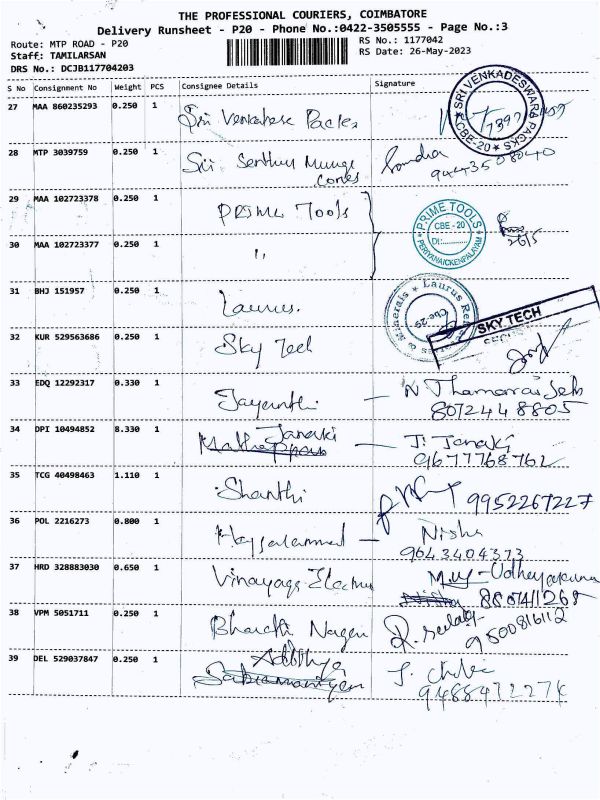 THE PROFESSIONAL COURIERS, COIMBATORE
Delivery Runsheet - P20 - Phone No.:0422-3505555 - Page No.:3
Route: MTP ROAD - P20 RS No.: 1177042
Staff: TAMILARSAN RS Date: 26-May-2023
DRS No.: DCJB117704203
S No Consignment No Weight PCS Consignee Details Signature
27 MAA 860235293 0.250 1 Sri Venkatesa Packs
SRI VENKADESWARA PACKS CBE-20
28 MTP 3039759 0.250 1 Sri Senthur Muruga
Cones
9443508040
29 MAA 102723378 0.250 1 PRIME Tools
PRIME TOOLS CBE - 20 Dt: PERIYANAICKENPALAYAM
30 MAA 102723377 0.250 1 "
26/5
31 BHJ 151957 0.250 1 Laurus.
Laurus Minerals & Cbe-29
32 KUR 529563686 0.250 1 Sky Tech
SKY TECH
33 EDQ 12292317 0.330 1 Jayanthi — N Thamarai Selvi
8072448805
34 DPI 10494852 8.330 1 Janaki — J. Janaki
9677768762
35 TCG 40498463 1.110 1 Shanthi 9952267227
36 POL 2216273 0.800 1 — Nisha
9643404373
37 HRD 328883030 0.650 1 Vinayaga Electrics
38 VPM 5051711 0.250 1 Bharathi Nagar
9500816112
39 DEL 529037847 0.250 1 Adithya
9488472274